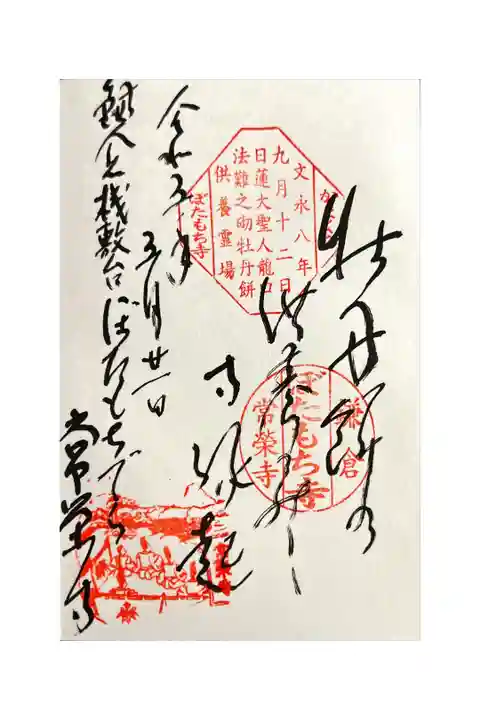 牡丹餅の
寺縁起
令和五年
五月廿一日
桟敷台ぼたもちでら
常榮寺
文永八年
九月十二日
日蓮大聖人龍口
法難之砌牡丹餅
供養霊場
ぼたもち寺
鎌倉
ぼたもち寺
常榮寺